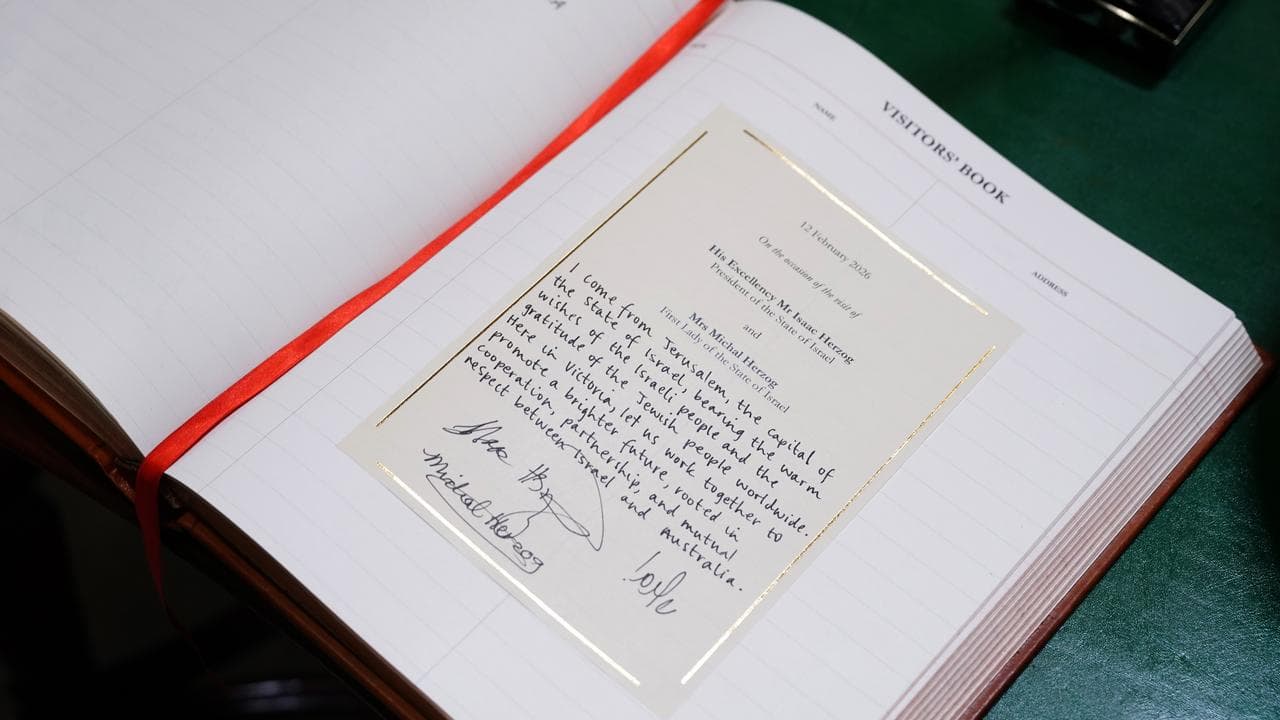 VISITORS' BOOK
NAME
ADDRESS
12 February 2026
On the occasion of the visit of
His Excellency Mr Isaac Herzog
President of the State of Israel
and
Mrs Michal Herzog
First Lady of the State of Israel
I come from Jerusalem, the capital of
the State of Israel, bearing the warm
wishes of the Israeli people and the
gratitude of the Jewish people worldwide.
Here in Victoria, let us work together to
promote a brighter future, rooted in
cooperation, partnership, and mutual
respect between Israel and Australia.
Michal Herzog